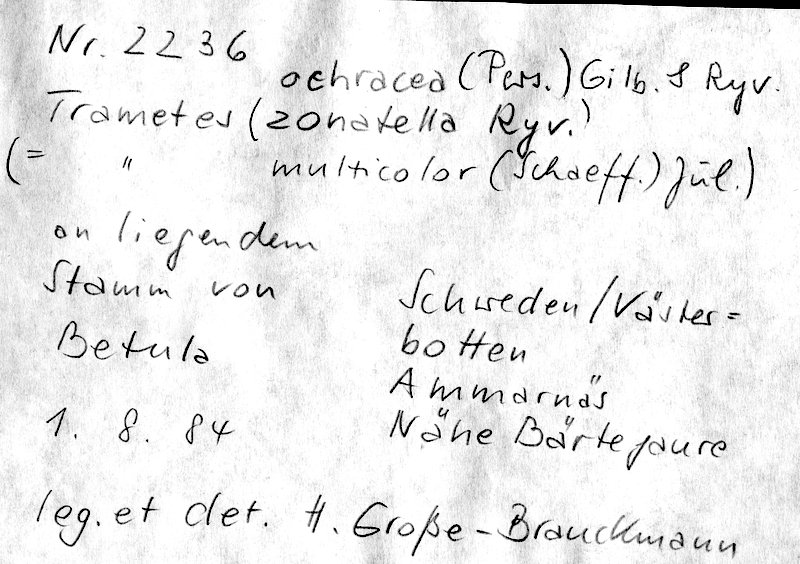 Nr. 2236
ochracea (Pers.) Gilb. & Ryv.
Trametes (zonatella Ryv.)
(= " multicolor (Schaeff.) Jül.)
an liegendem
Stamm von
Betula
1. 8. 84
Schweden/Väster=
botten
Ammarnäs
Nähe Bärtejaure
leg. et det. H. Große-Brauckmann